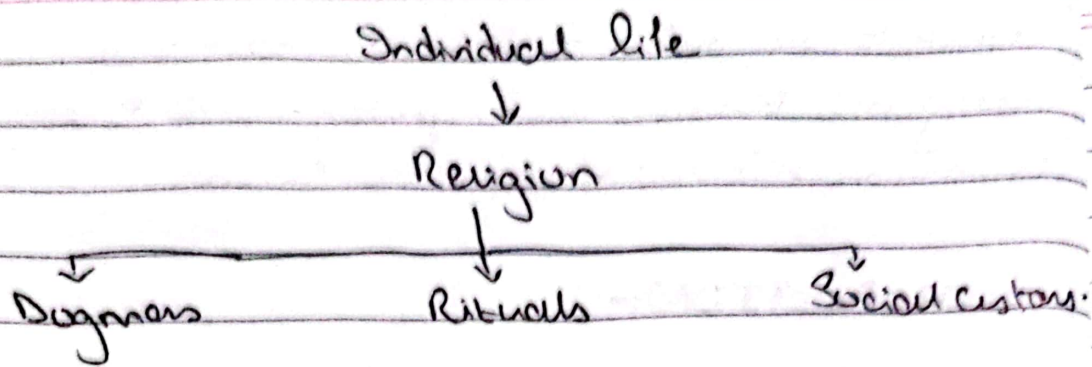 Individual life
Religion
Dogmas Rituals Social customs.